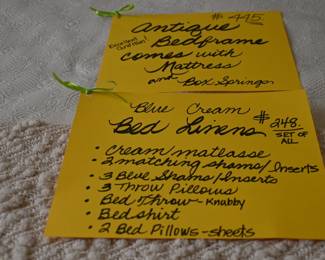 # 445.
Antique
Excellent Condition!
Bedframe
comes with
Mattress
and Box Springs
Blue Cream
Bed Linens
# 248.
SET OF
ALL
• Cream matlasse
• 2 matching shams/Inserts
• 3 Blue Shams/Inserts
• 3 Throw Pillows
• Bed Throw - Knubby
• Bedshirt
• 2 Bed Pillows - sheets